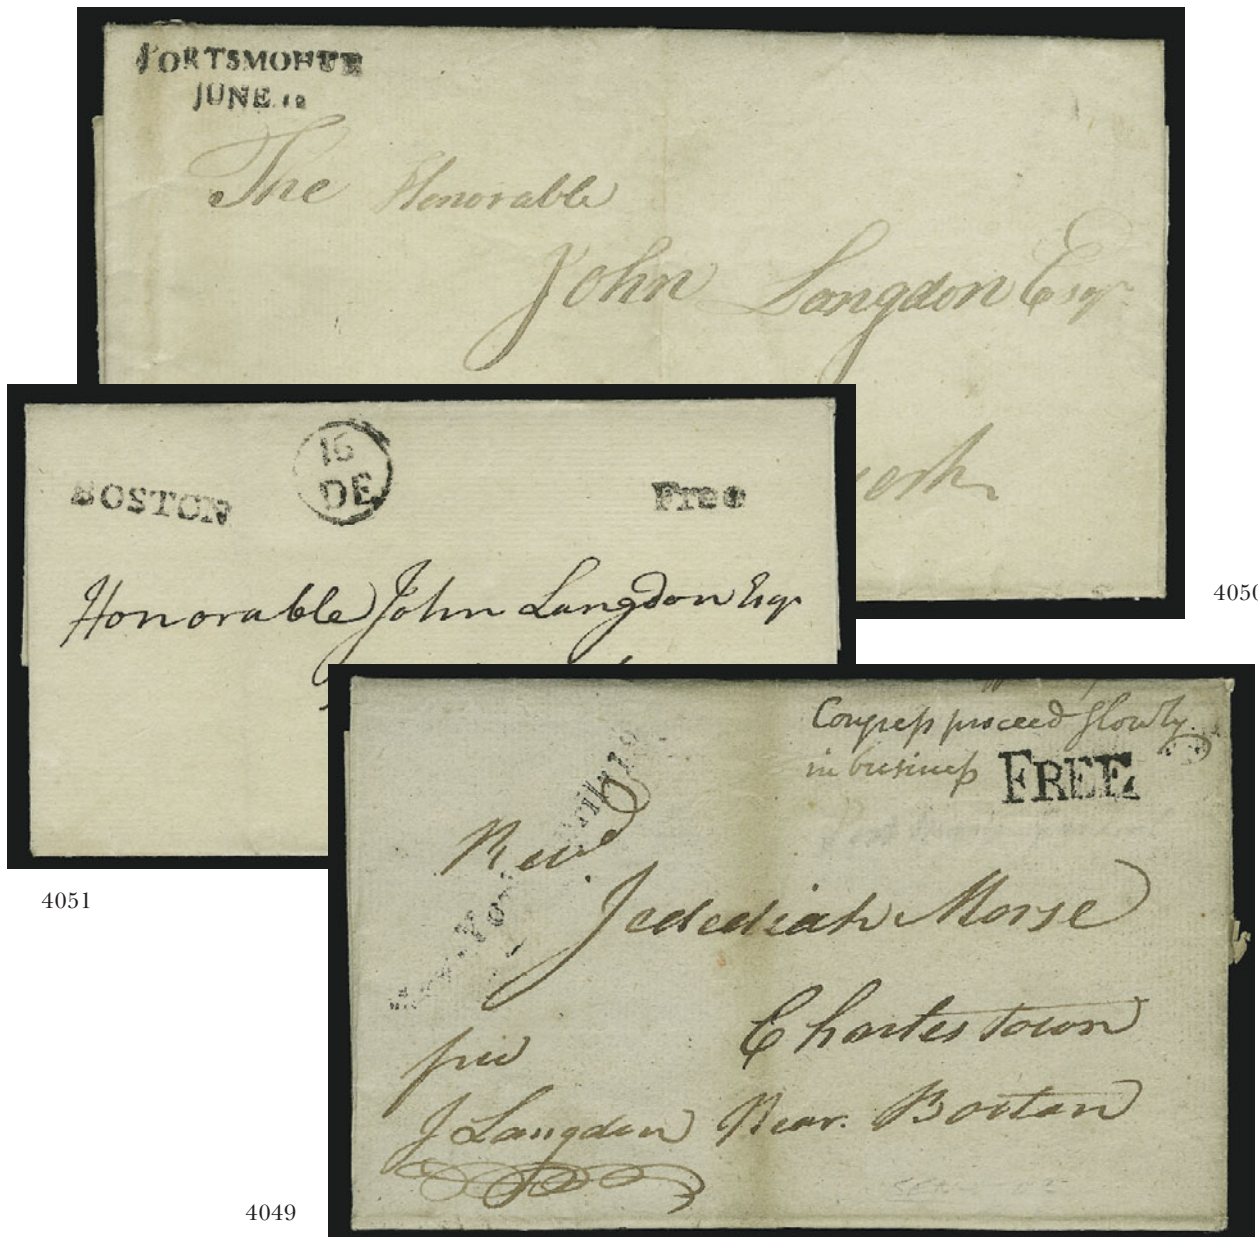 PORTSMOHUR
JUNE. 12
The Honorable
John Langdon Esqr
York
4050
BOSTON
15
DE
Free
Honorable John Langdon Esqr
4051
Congress proceed slowly
in business
FREE
Revd
Jedediah Morse
Charlestown
free
J Langdon Near Boston
4049